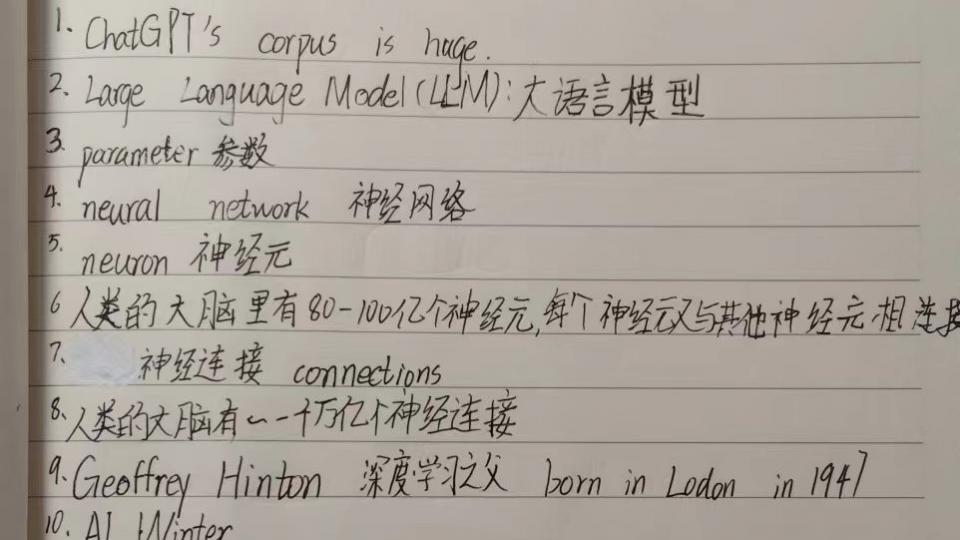 1. ChatGPT's corpus is huge.
2. Large Language Model (LLM): 大语言模型
3. parameter 参数
4. neural network 神经网络
5. neuron 神经元
6 人类的大脑里有80-100亿个神经元,每个神经元又与其他神经元相连接
7. 神经连接 connections
8. 人类的大脑有~一千万亿个神经连接
9. Geoffrey Hinton 深度学习之父 born in Lodon in 1947
10. AI Winter